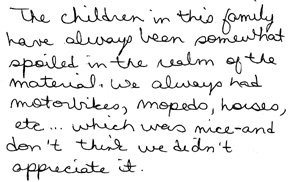 The children in this family
have always been somewhat
spoiled in the realm of the
material. We always had
motorbikes, mopeds, horses,
etc... which was nice-and
don't think we didn't
appreciate it.